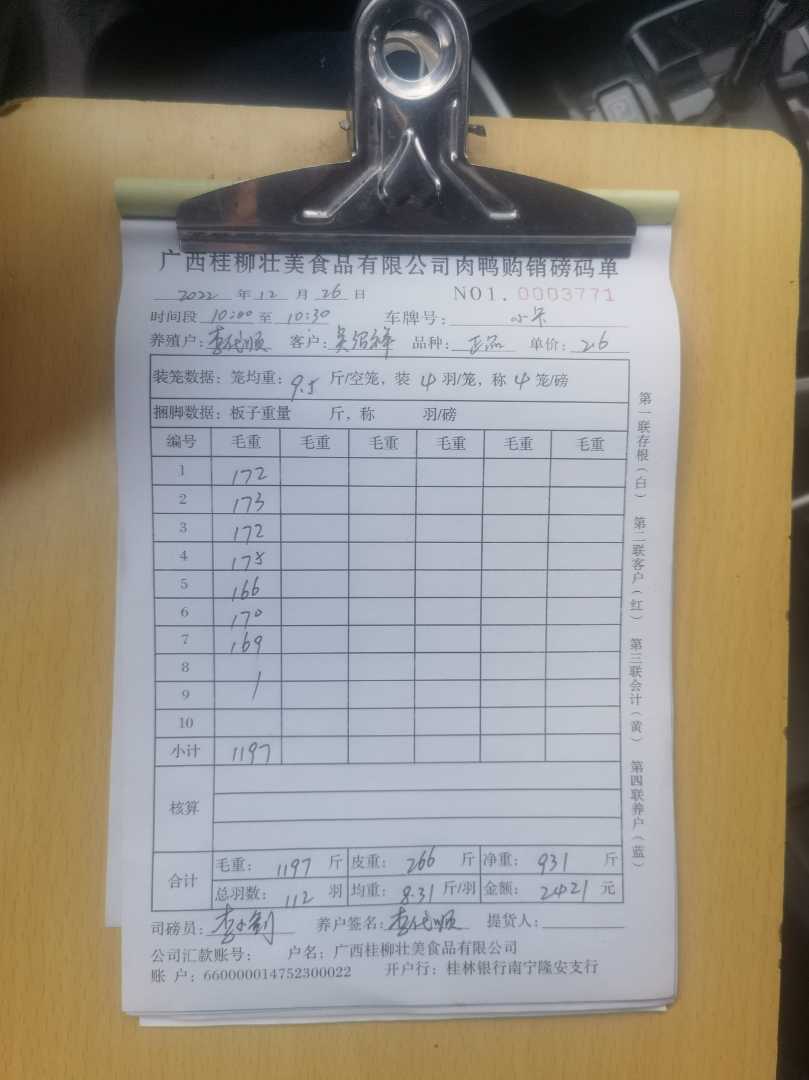 广西桂柳壮美食品有限公司肉鸭购销磅码单
2022 年 12 月 26 日 NO1. 0003771
时间段 10:00 至 10:30 车牌号: 小卡
养殖户: 李代顺 客户: 吴绍祥 品种: 正品 单价: 2.6
装笼数据: 笼均重: 9.5 斤/空笼, 装 4 羽/笼, 称 4 笼/磅
捆脚数据: 板子重量 斤, 称 羽/磅
编号 毛重 毛重 毛重 毛重 毛重 毛重
1 172
2 173
3 172
4 175
5 166
6 170
7 169
8
9
10
小计 1197
核算
合计 毛重: 1197 斤 皮重: 266 斤 净重: 931 斤
总羽数: 112 羽 均重: 8.31 斤/羽 金额: 2421 元
司磅员: 养户签名: 李代顺 提货人:
公司汇款账号: 户名: 广西桂柳壮美食品有限公司
账 户: 660000014752300022 开户行: 桂林银行南宁隆安支行
第一联存根(白) 第二联客户(红) 第三联会计(黄) 第四联养户(蓝)